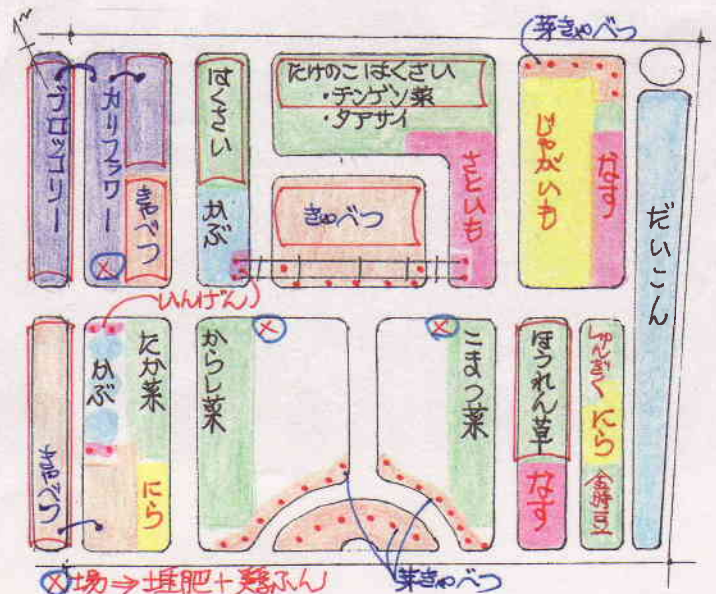 N
芽きゃべつ
ブロッコリー
カリフラワー
きゃべつ
はくさい
かぶ
たけのこはくさい
・チンゲン菜
・タアサイ
さといも
きゃべつ
じゃがいも
なす
だいこん
いんげん
きゃべつ
かぶ
たか菜
にら
からし菜
こまつ菜
ほうれん草
なす
しゅんぎく
にら
金時豆
芽きゃべつ
ⓧ場⇒堆肥+鶏ふん